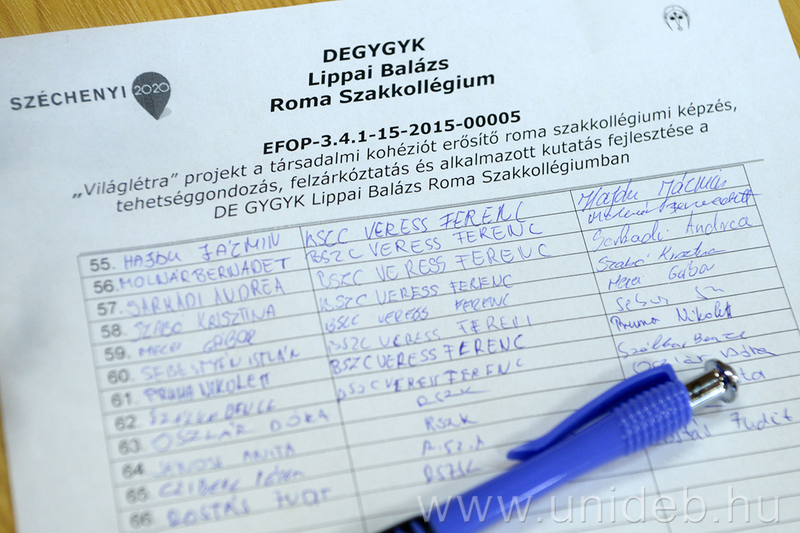 SZÉCHENYI 2020
DEGYGYK
Lippai Balázs
Roma Szakkollégium
EFOP-3.4.1-15-2015-00005
„Világlétra” projekt a társadalmi kohéziót erősítő roma szakkollégiumi képzés,
tehetséggondozás, felzárkóztatás és alkalmazott kutatás fejlesztése a
DE GYGYK Lippai Balázs Roma Szakkollégiumban
55. HAJDU JÁZMIN BSZC VERESS FERENC Hajdu Jázmin
56. MOLNÁR BERNADET BSZC VERESS FERENC
57. SÁRKÁDI ANDREA BSZC VERESS FERENC Sárkádi Andrea
58. SZABÓ KRISZTINA BSZC VERESS FERENC Szabó Krisztina
59. GÁBOR BSZC VERESS FERENC Gábor
60. SEBESTYÉN ISTVÁN BSZC VERESS FERENC
61. NIKOLETT BSZC VERESS FERENC Nikolett
62. BENCE BSZC VERESS FERENC Bence
63. OSZLÁR DÓRA
64. ANITA
65. PÉTER
66. ROSTÁS JUDIT Judit
www.unideb.hu